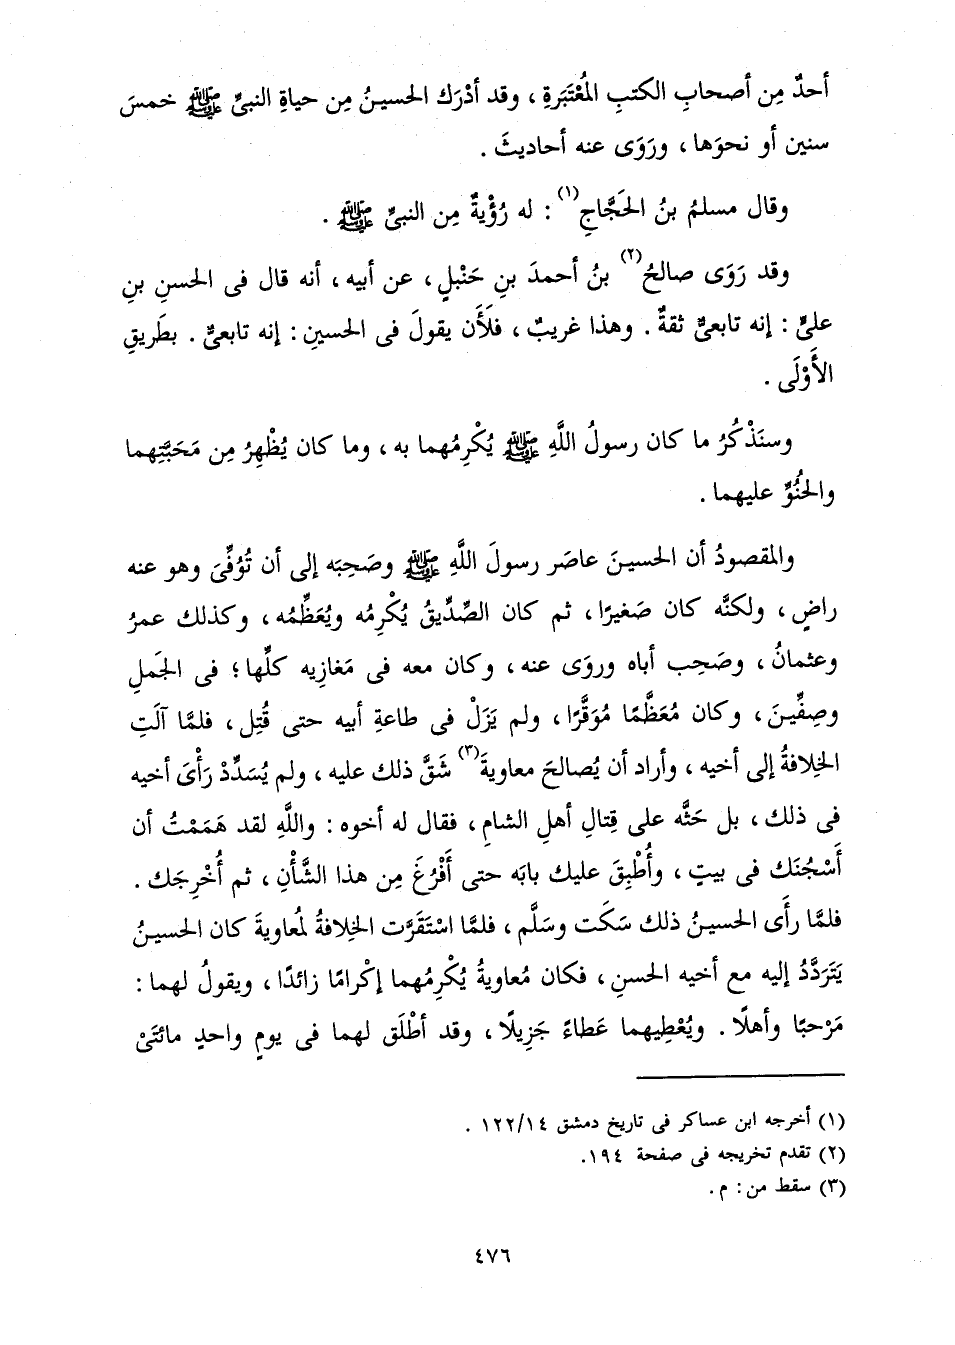 أحدٌ مِن أصحابِ الكتبِ المُعْتَبَرةِ ، وقد أدْرَك الحسينُ مِن حياةِ النبىِّ ﷺ خمسَ
سنين أو نحوَها ، ورَوَى عنه أحاديثَ .
وقال مسلمُ بنُ الحَجَّاجِ(١) : له رُؤْيةٌ مِن النبىِّ ﷺ .
وقد رَوَى صالحُ(٢) بنُ أحمدَ بنِ حَنْبلٍ ، عن أبيه ، أنه قال فى الحسنِ بنِ
علىٍّ : إنه تابعىٌّ ثقةٌ . وهذا غريبٌ ، فلَأَن يقولَ فى الحسينِ : إنه تابعىٌّ . بطَريقِ
الأَوْلَى .
وسنَذْكُرُ ما كان رسولُ اللَّهِ ﷺ يُكْرِمُهما به ، وما كان يُظْهِرُ مِن مَحَبَّتِهما
والحُنُوِّ عليهما .
والمقصودُ أن الحسينَ عاصَر رسولَ اللَّهِ ﷺ وصَحِبَه إلى أن تُوُفِّىَ وهو عنه
راضٍ ، ولكنَّه كان صَغيرًا ، ثم كان الصِّدِّيقُ يُكْرِمُه ويُعَظِّمُه ، وكذلك عمرُ
وعثمانُ ، وصَحِب أباه وروَى عنه ، وكان معه فى مَغازِيه كلِّها ؛ فى الجَملِ
وصِفِّينَ ، وكان مُعَظَّمًا مُوَقَّرًا ، ولم يَزَلْ فى طاعةِ أبيه حتى قُتِل ، فلمَّا آلَتِ
الخِلافةُ إلى أخيه ، وأراد أن يُصالحَ معاويةَ(٣) شَقَّ ذلك عليه ، ولم يُسَدِّدْ رَأْىَ أخيه
فى ذلك ، بل حَثَّه على قِتالِ أهلِ الشامِ ، فقال له أخوه : واللَّهِ لقد هَمَمْتُ أن
أَسْجُنَك فى بيتٍ ، وأُطْبِقَ عليك بابَه حتى أَفْرُغَ مِن هذا الشَّأْنِ ، ثم أُخْرِجَك .
فلمَّا رأَى الحسينُ ذلك سَكَت وسَلَّم ، فلمَّا اسْتَقَرَّت الخِلافةُ لمُعاويةَ كان الحسينُ
يَتَرَدَّدُ إليه مع أخيه الحسنِ ، فكان مُعاويةُ يُكْرِمُهما إكْرامًا زائدًا ، ويقولُ لهما :
مَرْحبًا وأهلًا . ويُعْطِيهما عَطاءً جَزِيلًا ، وقد أطْلَق لهما فى يومٍ واحدٍ مائتَىْ
(١) أخرجه ابن عساكر فى تاريخ دمشق ١٢٢/١٤ .
(٢) تقدم تخريجه فى صفحة ١٩٤.
(٣) سقط من : م .
٤٧٦